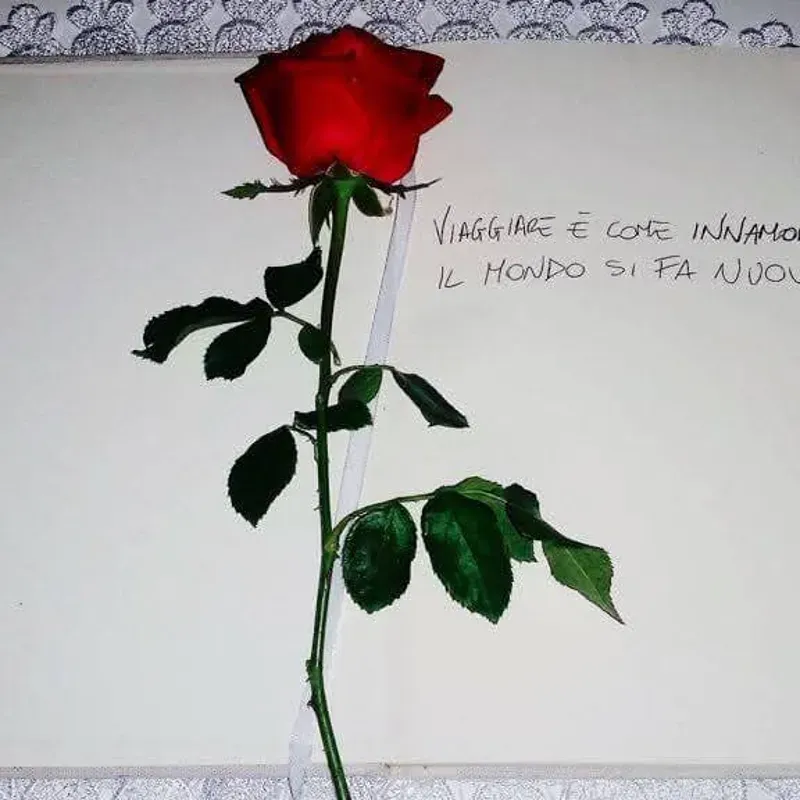 VIAGGIARE È COME INNAMO
IL MONDO SI FA NUOV